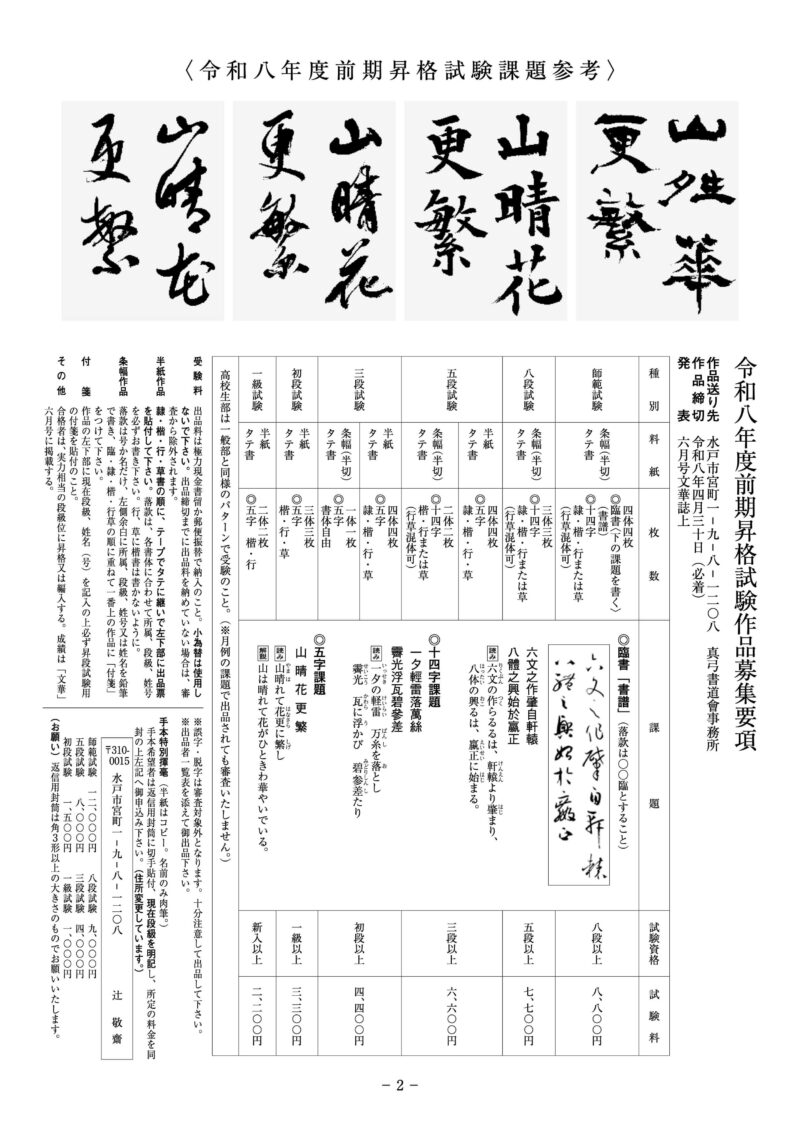 〈令和八年度前期昇格試験課題参考〉
山晴花
更繁
山晴花
更繁
山晴花
更繁
山晴花
更繁
令和八年度前期昇格試験作品募集要項
作品送り先 水戸市宮町一－九－八－一二〇八 真弓書道會事務所
作品締切 令和八年四月三十日（必着）
発表 六月号文華誌上
種別
料紙
枚数
課題
試験資格
試験料
師範試験
条幅（半切）
タテ書
四体四枚
◎臨書（下の課題を書く）
（書譜）
◎十四字
隷・楷・行または草
（行草混体可）
八段以上
八、八〇〇円
八段試験
条幅（半切）
タテ書
三体三枚
◎十四字
隷・楷・行または草
（行草混体可）
五段以上
七、七〇〇円
五段試験
半紙
タテ書
四体四枚
◎五字
隷・楷・行・草
条幅（半切）
タテ書
二体二枚
◎十四字
楷・行または草
（行草混体可）
三段以上
六、六〇〇円
三段試験
半紙
タテ書
四体四枚
◎五字
隷・楷・行・草
条幅（半切）
タテ書
一体一枚
◎五字
書体自由
初段以上
四、四〇〇円
初段試験
半紙
タテ書
三体三枚
◎五字
楷・行・草
一級以上
三、三〇〇円
一級試験
半紙
タテ書
二体二枚
◎五字 楷・行
新入以上
二、二〇〇円
◎臨書「書譜」（落款は〇〇臨とすること）
六文之作肇自軒轅
八體之興始於嬴正
六文之作肇自軒轅
八體之興始於嬴正
読み 六文の作らるるは、軒轅より肇まり、
八体の興るは、嬴正に始まる。
◎十四字課題
一夕輕雷落萬絲
霽光浮瓦碧參差
読み 一夕の軽雷 万糸を落とし
霽光、瓦に浮かび 碧参差たり
◎五字課題
山晴花更繁
読み 山晴れて花更に繁し
解説 山は晴れて花がひときわ華やいでいる。
高校生部は一般部と同様のパターンで受験のこと。（※月例の課題で出品されても審査いたしません。）
受験料 出品料は極力現金書留か郵便振替で納入のこと。小為替は使用し
ないで下さい。出品締切までに出品料を納めていない場合は、審
査から除外されます。
半紙作品 隷・楷・行・草書の順に、テープでタテに継いで左下部に出品票
を貼付して下さい。落款は、各書体に合わせて所属、段級、姓号
を必ずお書き下さい。行、草に楷書は書かないように。
条幅作品 落款は号か名だけ、左側余白に所属、段級、姓号又は姓名を鉛筆
で書き、臨・隷・楷・行草の順に重ねて一番上の作品に「付箋」
をつけて下さい。
付箋 作品の左下部に現在段級、姓名（号）を記入の上必ず昇段試験用
の付箋を貼付のこと。
その他 合格者は、実力相当の段級位に昇格又は編入する。成績は「文華」
六月号に掲載する。
※誤字・脱字は審査対象外となります。十分注意して出品して下さい。
※出品者一覧表を添えて御出品下さい。
手本特別揮毫（半紙はコピー。名前のみ肉筆。）
手本希望者は返信用封筒に切手貼付、現在段級を明記し、所定の料金を同
封の上左記へ御申込み下さい。（住所変更しています。）
〒310-0015 水戸市宮町一－九－八－一二〇八 辻 敬齋
師範試験 一二、〇〇〇円 八段試験 九、〇〇〇円
五段試験 八、〇〇〇円 三段試験 四、〇〇〇円
初段試験 一、五〇〇円 一級試験 一、〇〇〇円
（お願い）返信用封筒は角3形以上の大きさのものでお願いいたします。
－2－